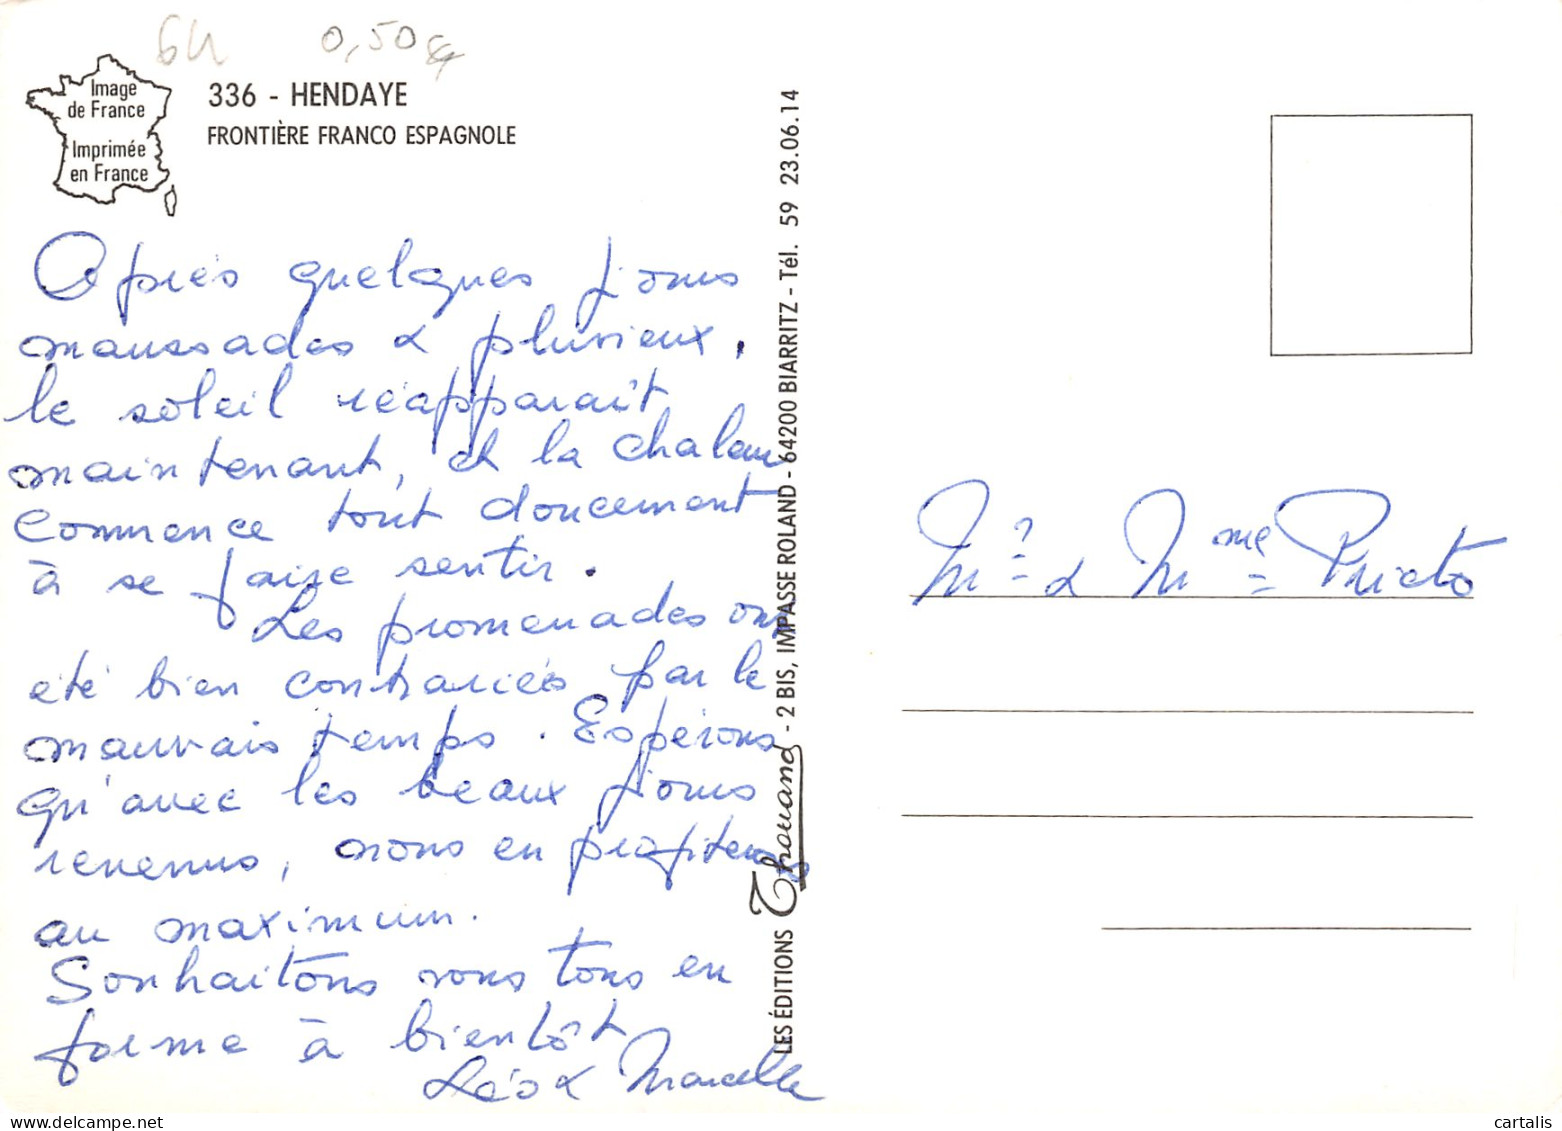 64 0,50 €
Image
de France
Imprimée
en France
336 - HENDAYE
FRONTIÈRE FRANCO ESPAGNOLE
Après quelques jours
maussades & pluvieux,
le soleil réapparaît
maintenant, et la chaleur
commence tout doucement
à se faire sentir.
Les promenades ont
été bien contrariées par le
mauvais temps. Espérons
qu'avec les beaux jours
revenus, nous en profiterons
au maximum.
Souhaitons vous tous en
forme à bientôt
Léo & Marcelle
LES ÉDITIONS Thouand - 2 BIS, IMPASSE ROLAND - 64200 BIARRITZ - Tél. 59 23.06.14
Mr & Mme Prieto
cartalis